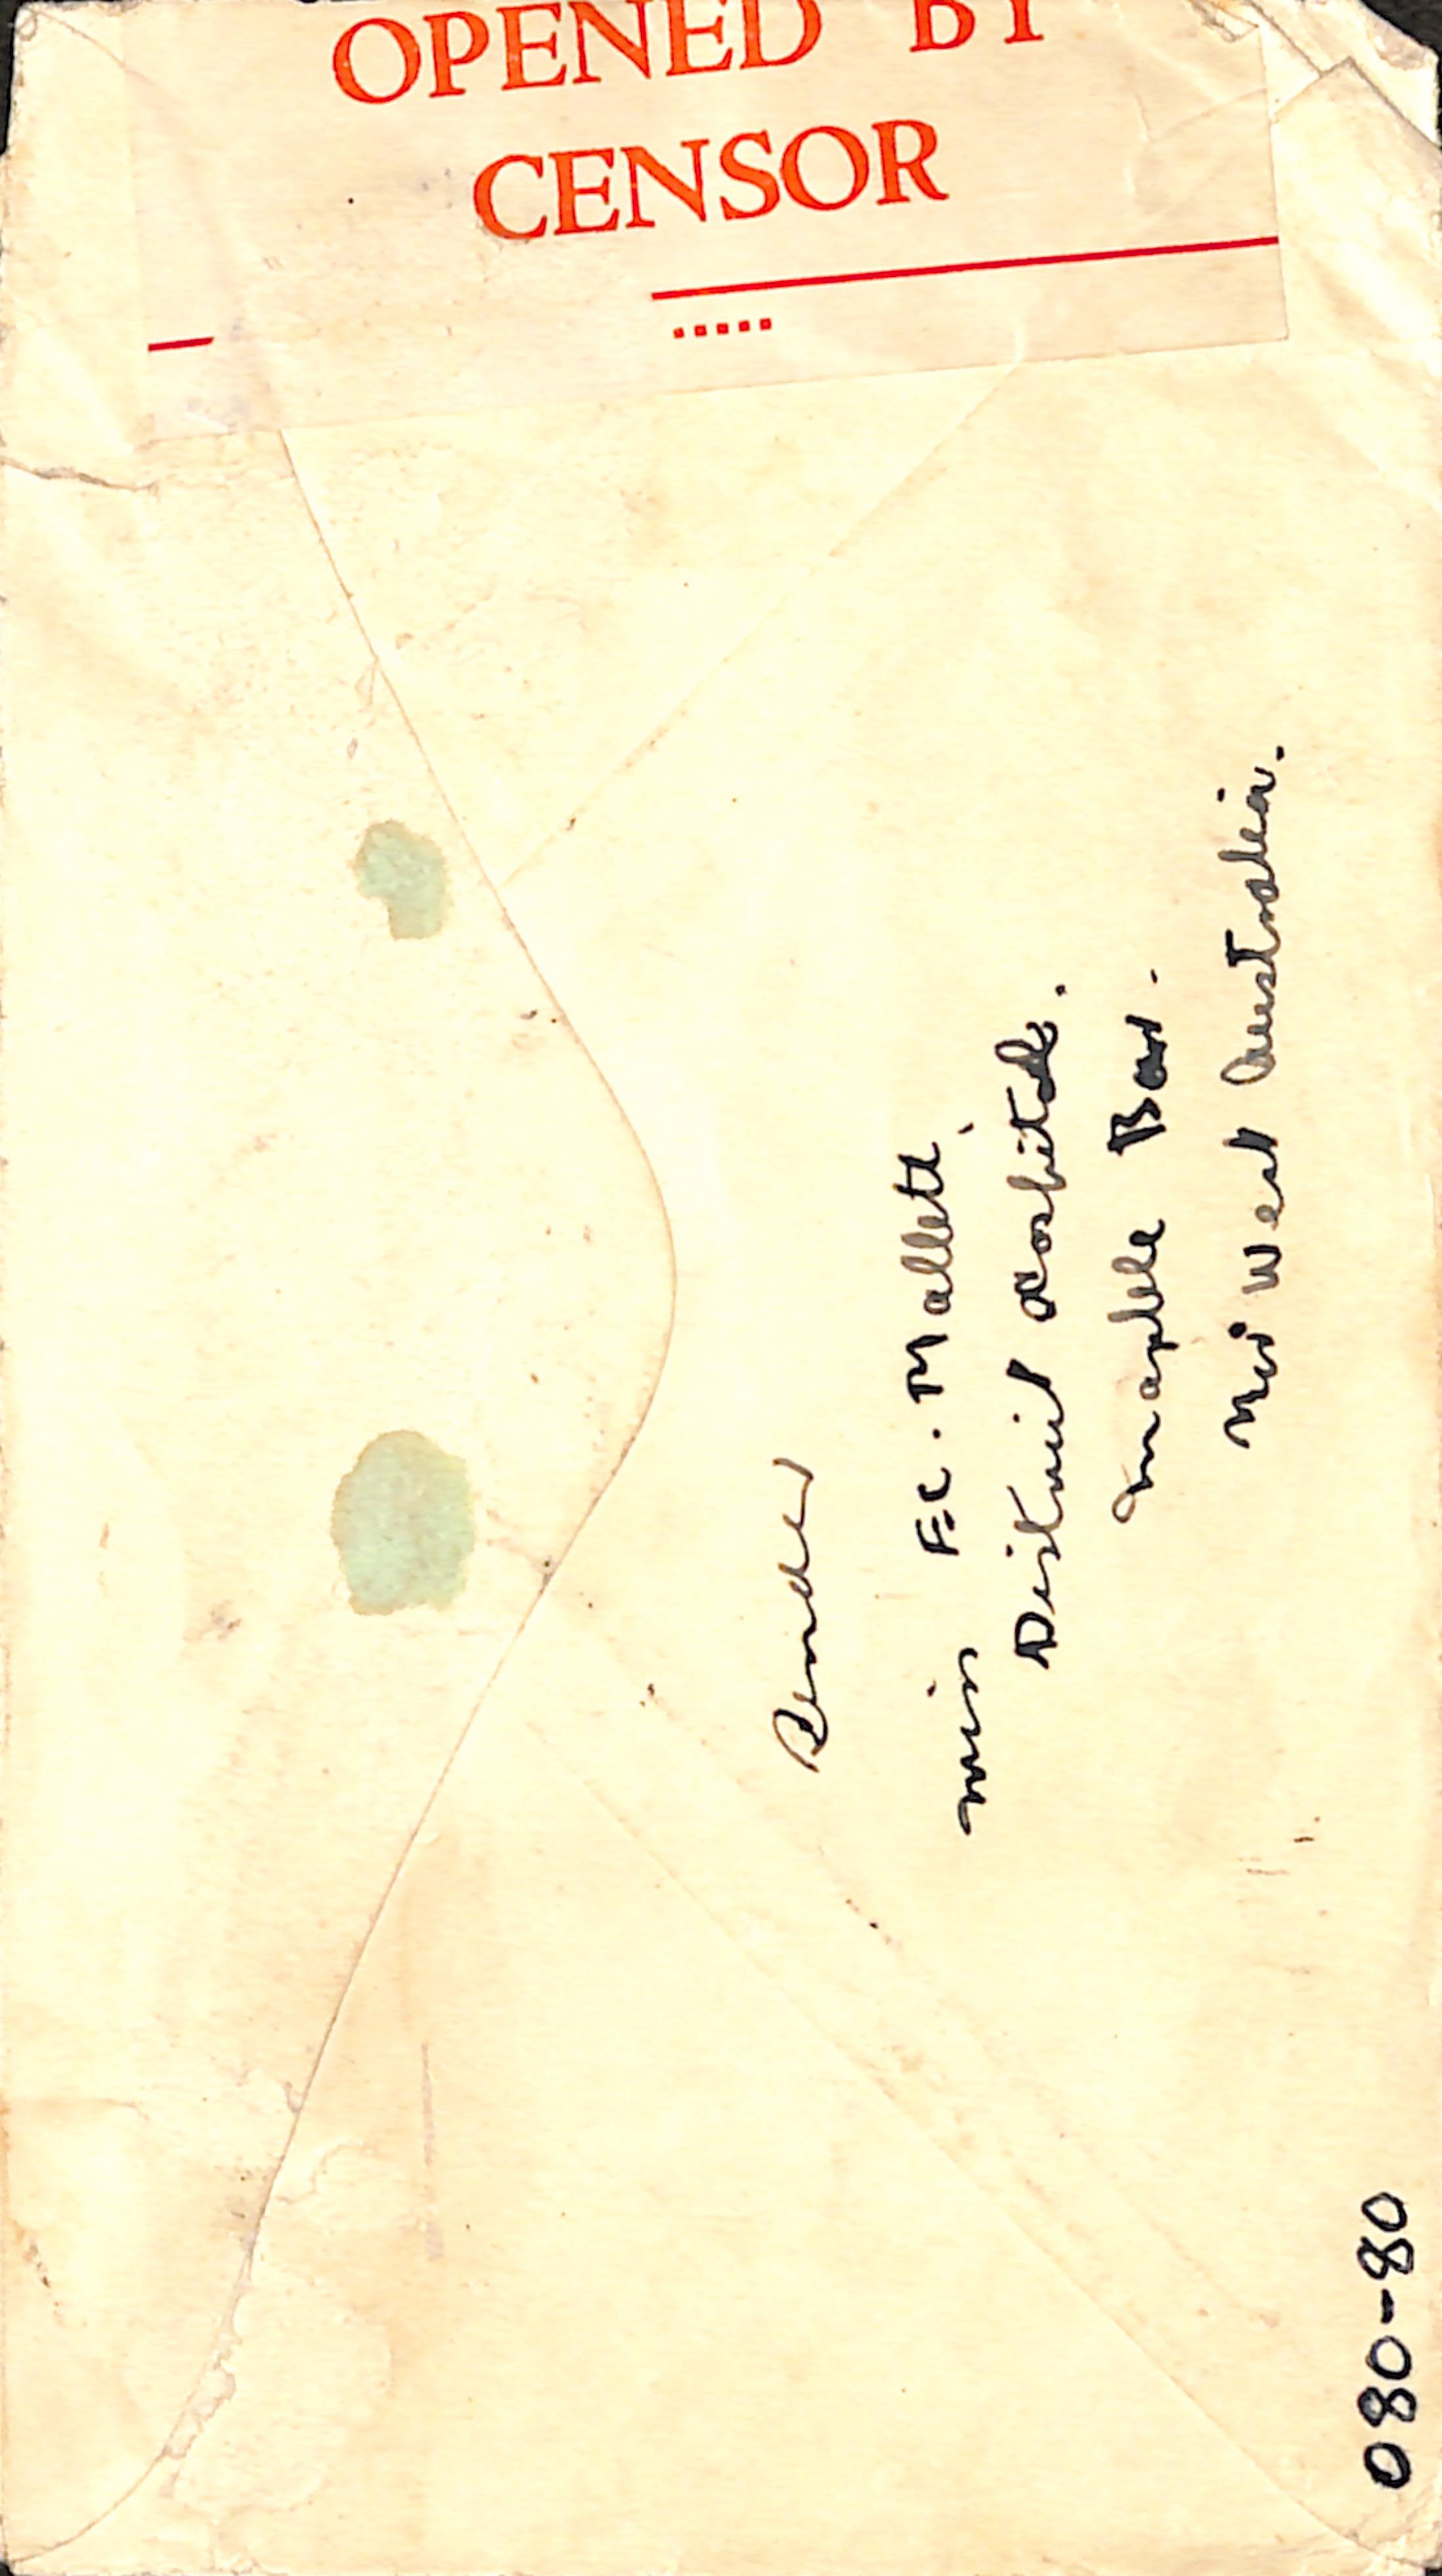 OPENED BY
CENSOR
Sender
Miss F.C. Mallett,
District Hospital.
Marble Bar.
Nor West Australia.
080-80